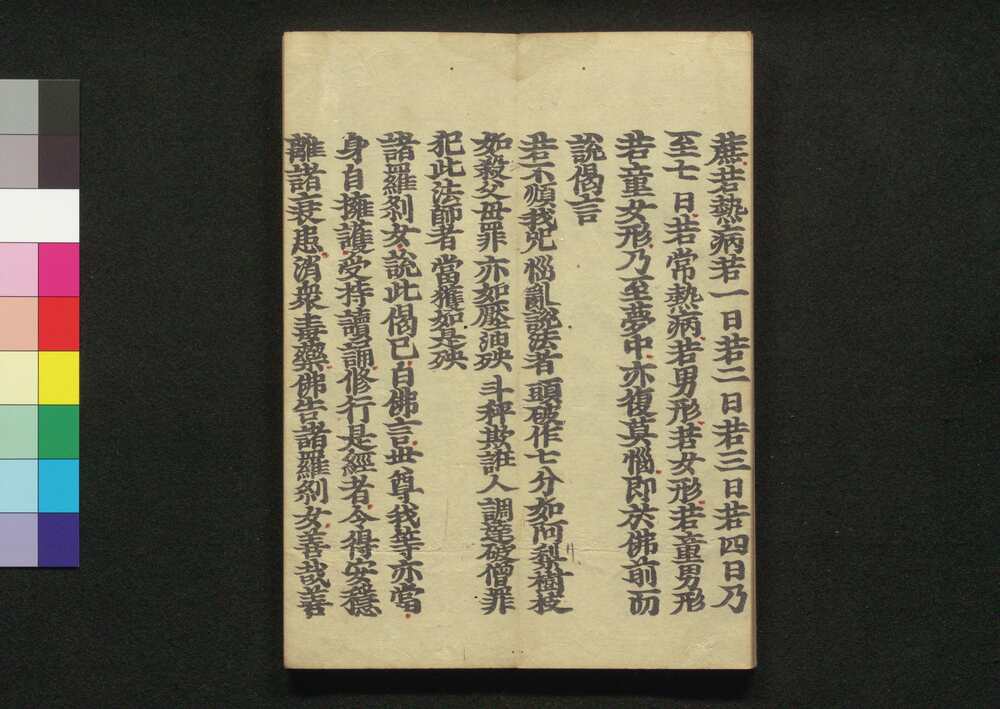 蔗若熱病若一日若二日若三日若四日乃
至七日若常熱病若男形若女形若童男形
若童女形乃至夢中亦復莫惱即於佛前而
說偈言
若不順我呪 惱亂說法者 頭破作七分 如阿梨樹枝
如殺父母罪 亦如壓油殃 斗秤欺誑人 調達破僧罪
犯此法師者 當獲如是殃
諸羅剎女說此偈已白佛言世尊我等亦當
身自擁護受持讀誦修行是經者令得安穩
離諸衰患消衆毒藥佛告諸羅剎女善哉善